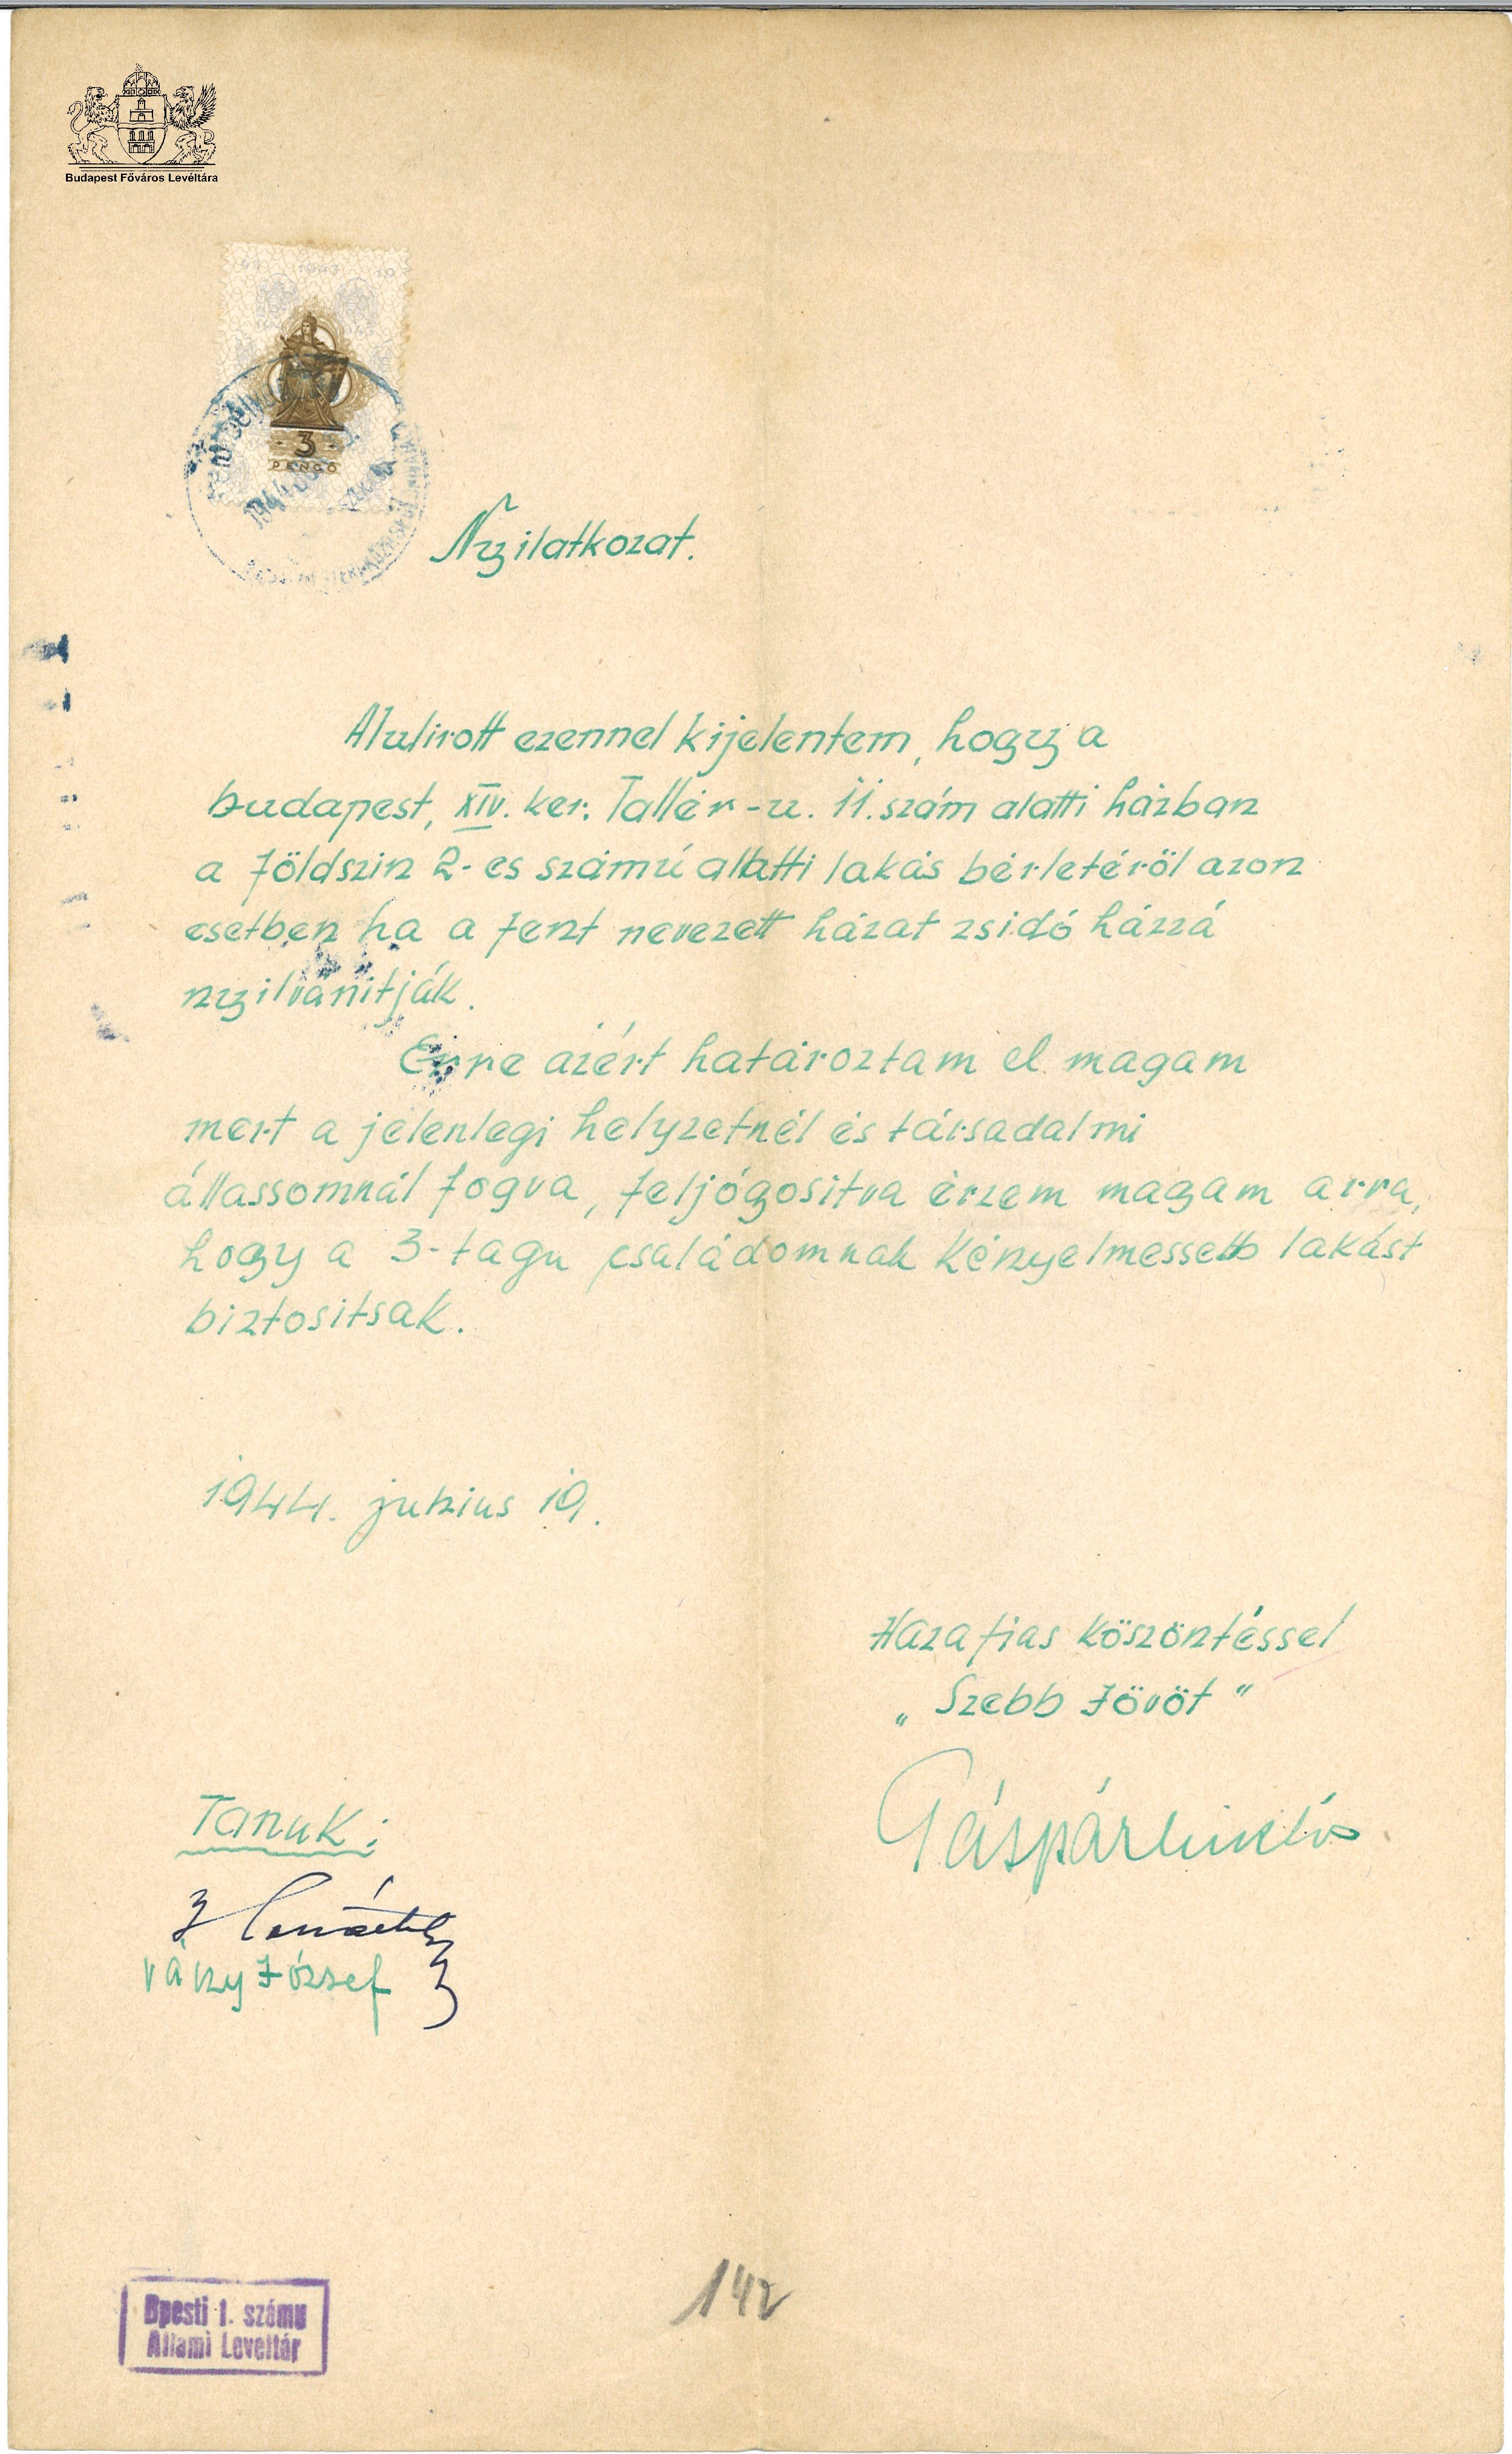 Budapest Főváros Levéltára
3
PENGŐ
1944
Nyilatkozat.
Alulirott ezennel kijelentem, hogy a
budapest, XIV. ker. Tallér-u. 11. szám alatti házban
a földszin 2-es számú allatti lakás bérletéröl azon
esetben ha a fent nevezett házat zsidó házzá
nyilvánitják.
Erre azért határoztam el magam
mert a jelenlegi helyzetnél és társadalmi
állassomnál fogva, feljógositva érzem magam arra,
hogy a 3-tagu családomnak kényelmessebb lakást
biztositsak.
1944. junius 19.
Hazafias köszöntéssel
„Szebb Jövöt"
Gáspár Miklós
Tanuk:
Vány József
142
Bpesti 1. számu
Állami Levéltár